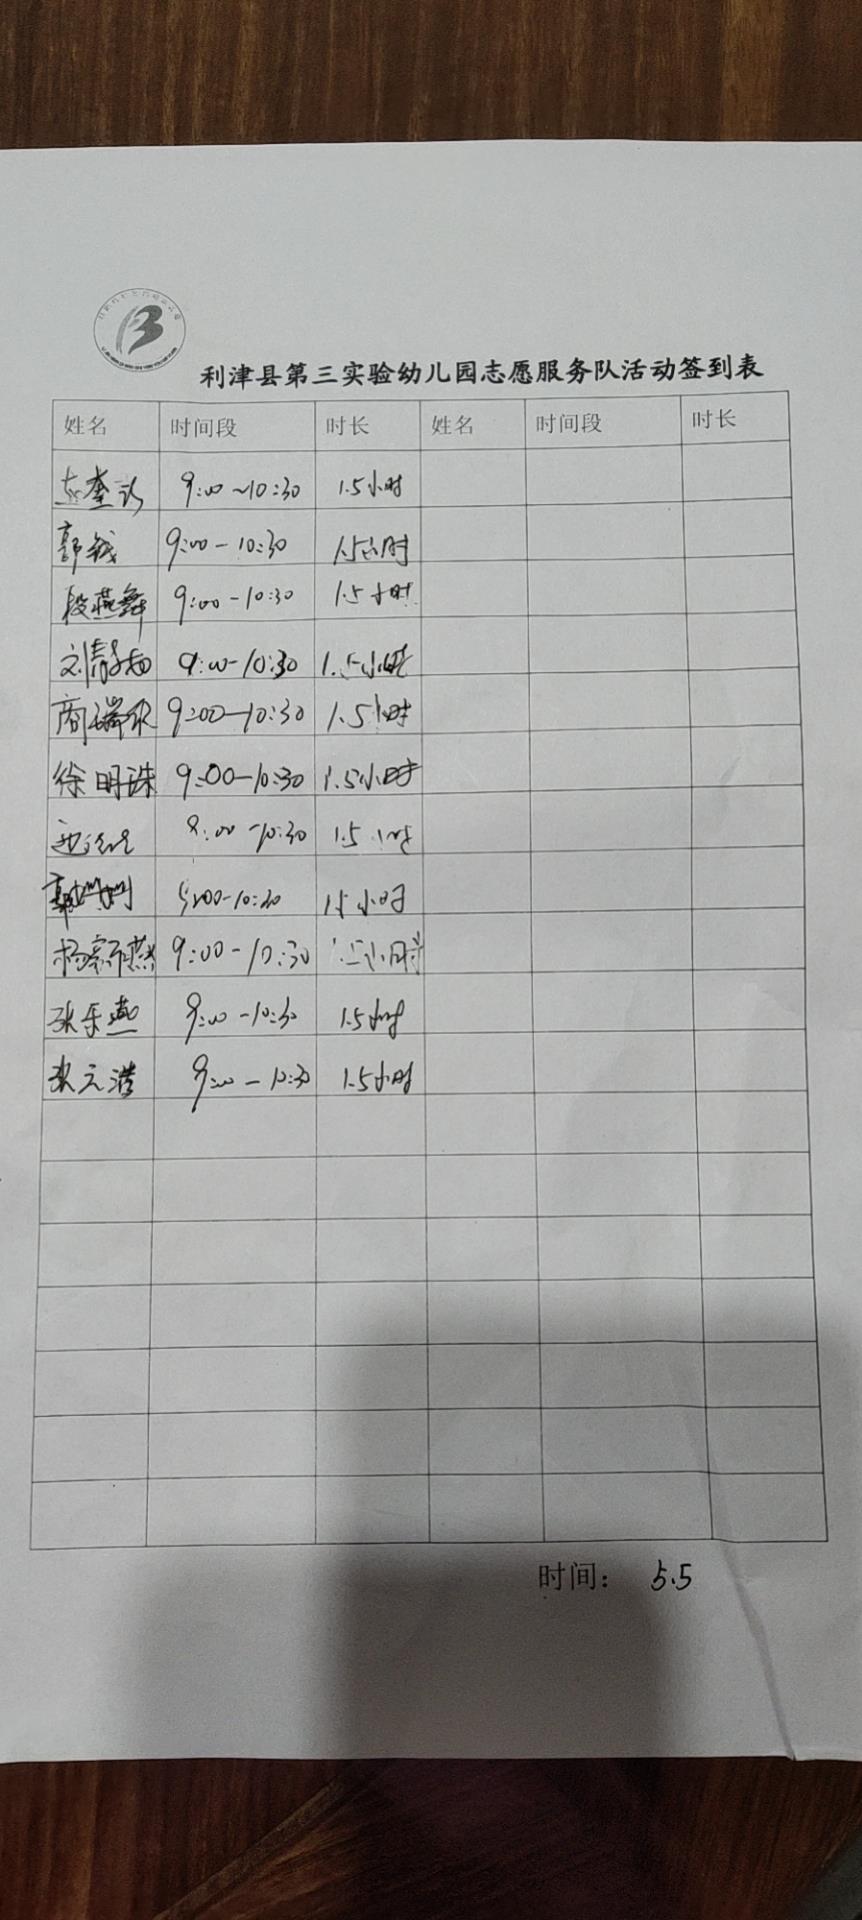 利津县第三实验幼儿园志愿服务队活动签到表
姓名 时间段 时长 姓名 时间段 时长
9:00~10:30 1.5小时
9:00-10:30 1.5小时
段燕舞 9:00-10:30 1.5小时
9:00-10:30 1.5小时
9:00-10:30 1.5小时
徐明珠 9:00-10:30 1.5小时
9:00-10:30 1.5小时
1.5小时
9:00-10:30 1.5小时
张乐燕 9:00-10:30 1.5小时
张元浩 9:00-10:30 1.5小时
时间: 5.5